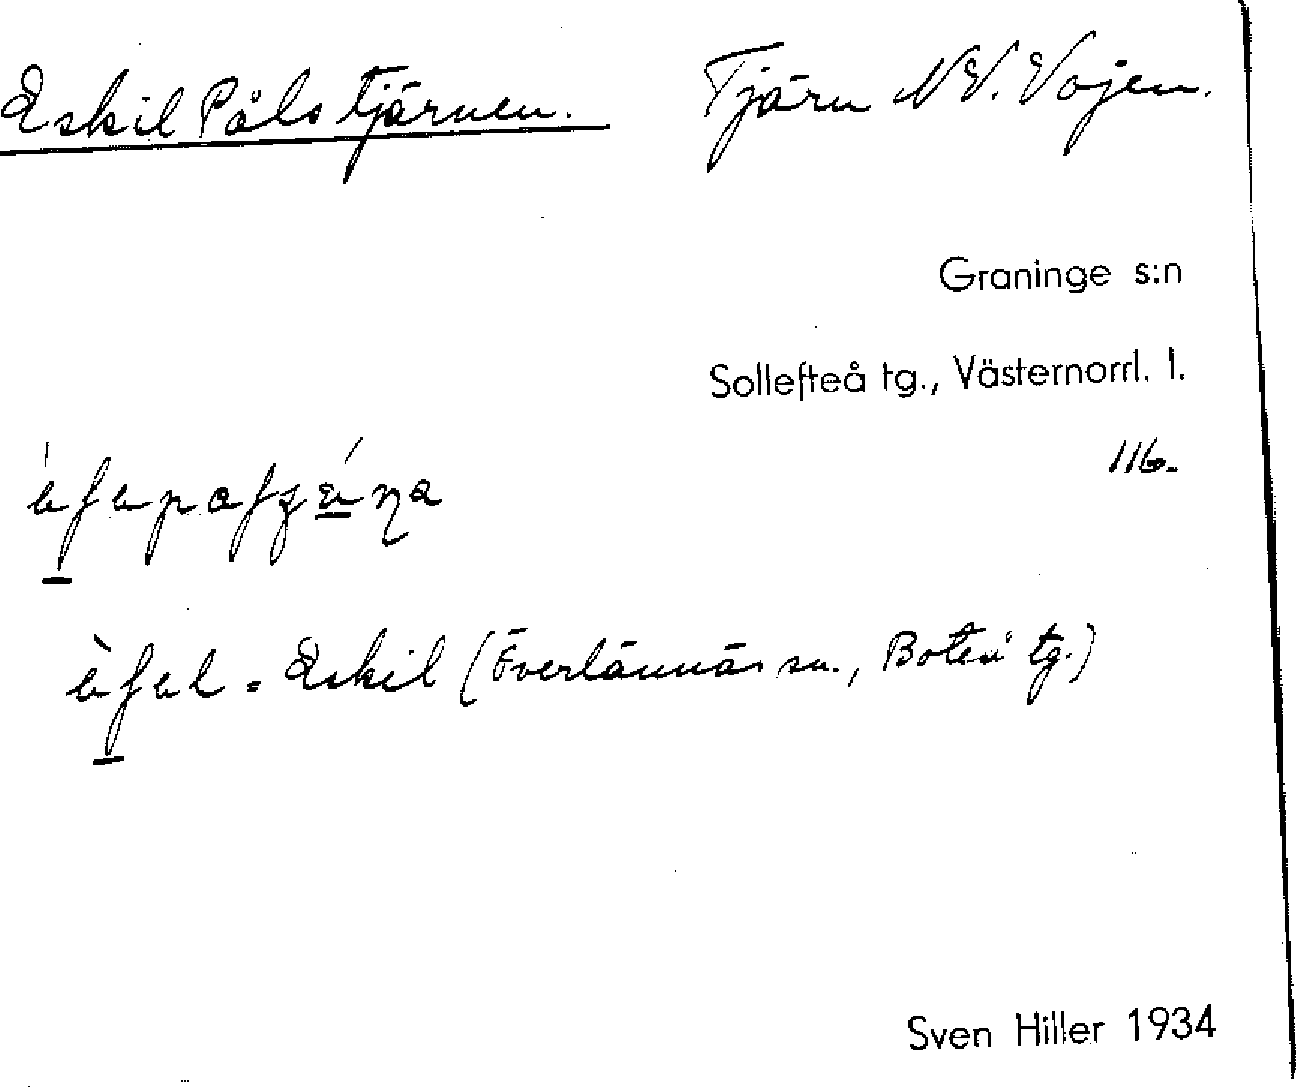 Eskil Påls tjärnen. Tjärn NV. Vojen.
Graninge s:n
Sollefteå tg., Västernorrl. l.
116.
= Eskil (Överlännäs sn., Boteå tg.)
Sven Hiller 1934